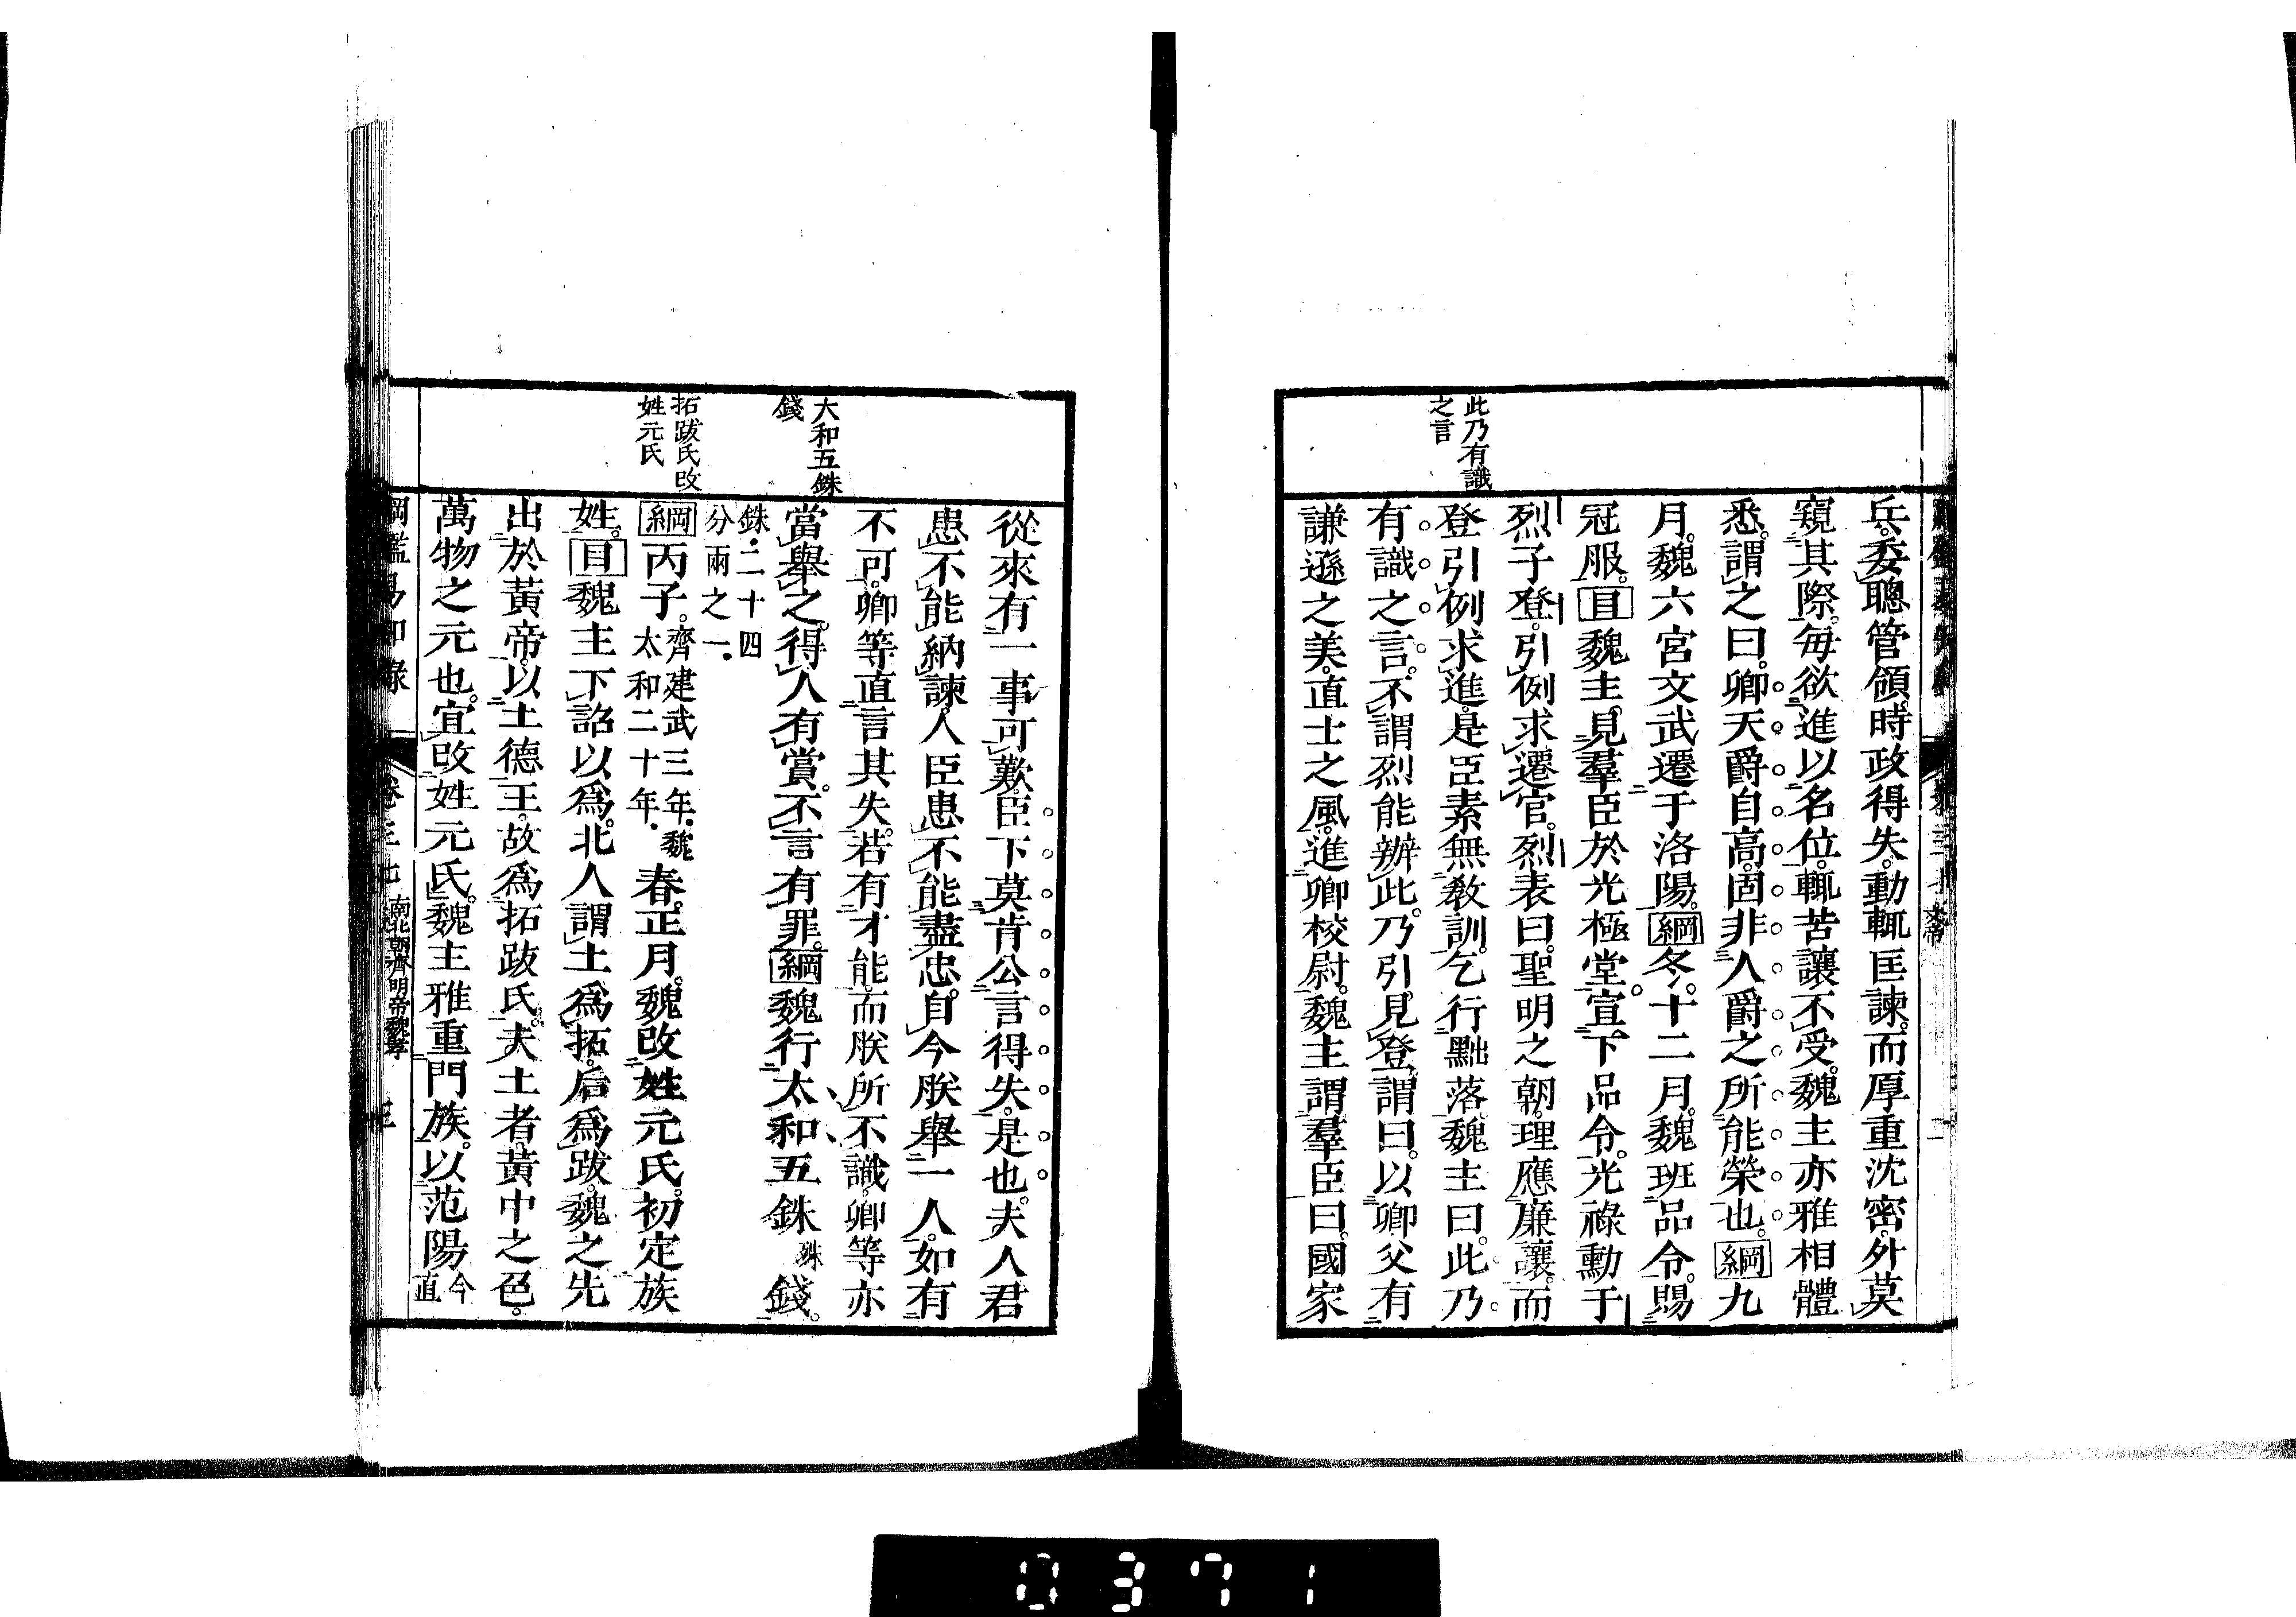 兵。委聰管領。時政得失。動輒匡諫。而厚重沈密。外莫
窺其際。每欲進以名位。輒苦讓不受。魏主亦雅相體
悉。謂之曰。卿天爵自高。固非人爵之所能榮也。綱九
月。魏六宮文武遷于洛陽。綱冬。十二月。魏班品令。賜
冠服。目魏主見羣臣於光極堂。宣下品令。光祿勳于
烈子登。引例求遷官。烈表曰。聖明之朝。理應廉讓。而
登引例求進。是臣素無教訓。乞行黜落。魏主曰。此乃
有識之言。不謂烈能辦此。乃引見登。謂曰。以卿父有
謙遜之美。直士之風。進卿校尉。魏主謂羣臣曰。國家
此乃有識
之言
從來有一事可歎。臣下莫肯公言得失。是也。夫人君
患不能納諫。人臣患不能盡忠。自今朕舉一人。如有
不可。卿等直言其失。若有才能。而朕所不識。卿等亦
當舉之。得人有賞。不言有罪。綱魏行太和五銖殊錢。
銖。二十四
分兩之一。
綱丙子。齊建武三年。魏太和二十年。春。正月。魏改姓元氏。初定族
姓。目魏主下詔以爲。北人謂土爲拓。后爲跋。魏之先
出於黃帝。以土德王。故爲拓跋氏。夫土者。黃中之色。
萬物之元也。宜改姓元氏。魏主雅重門族。以范陽今直
大和五銖
錢
拓跋氏改
姓元氏
綱鑑易知錄 卷三七 南北朝齊明帝魏孝 三
0371